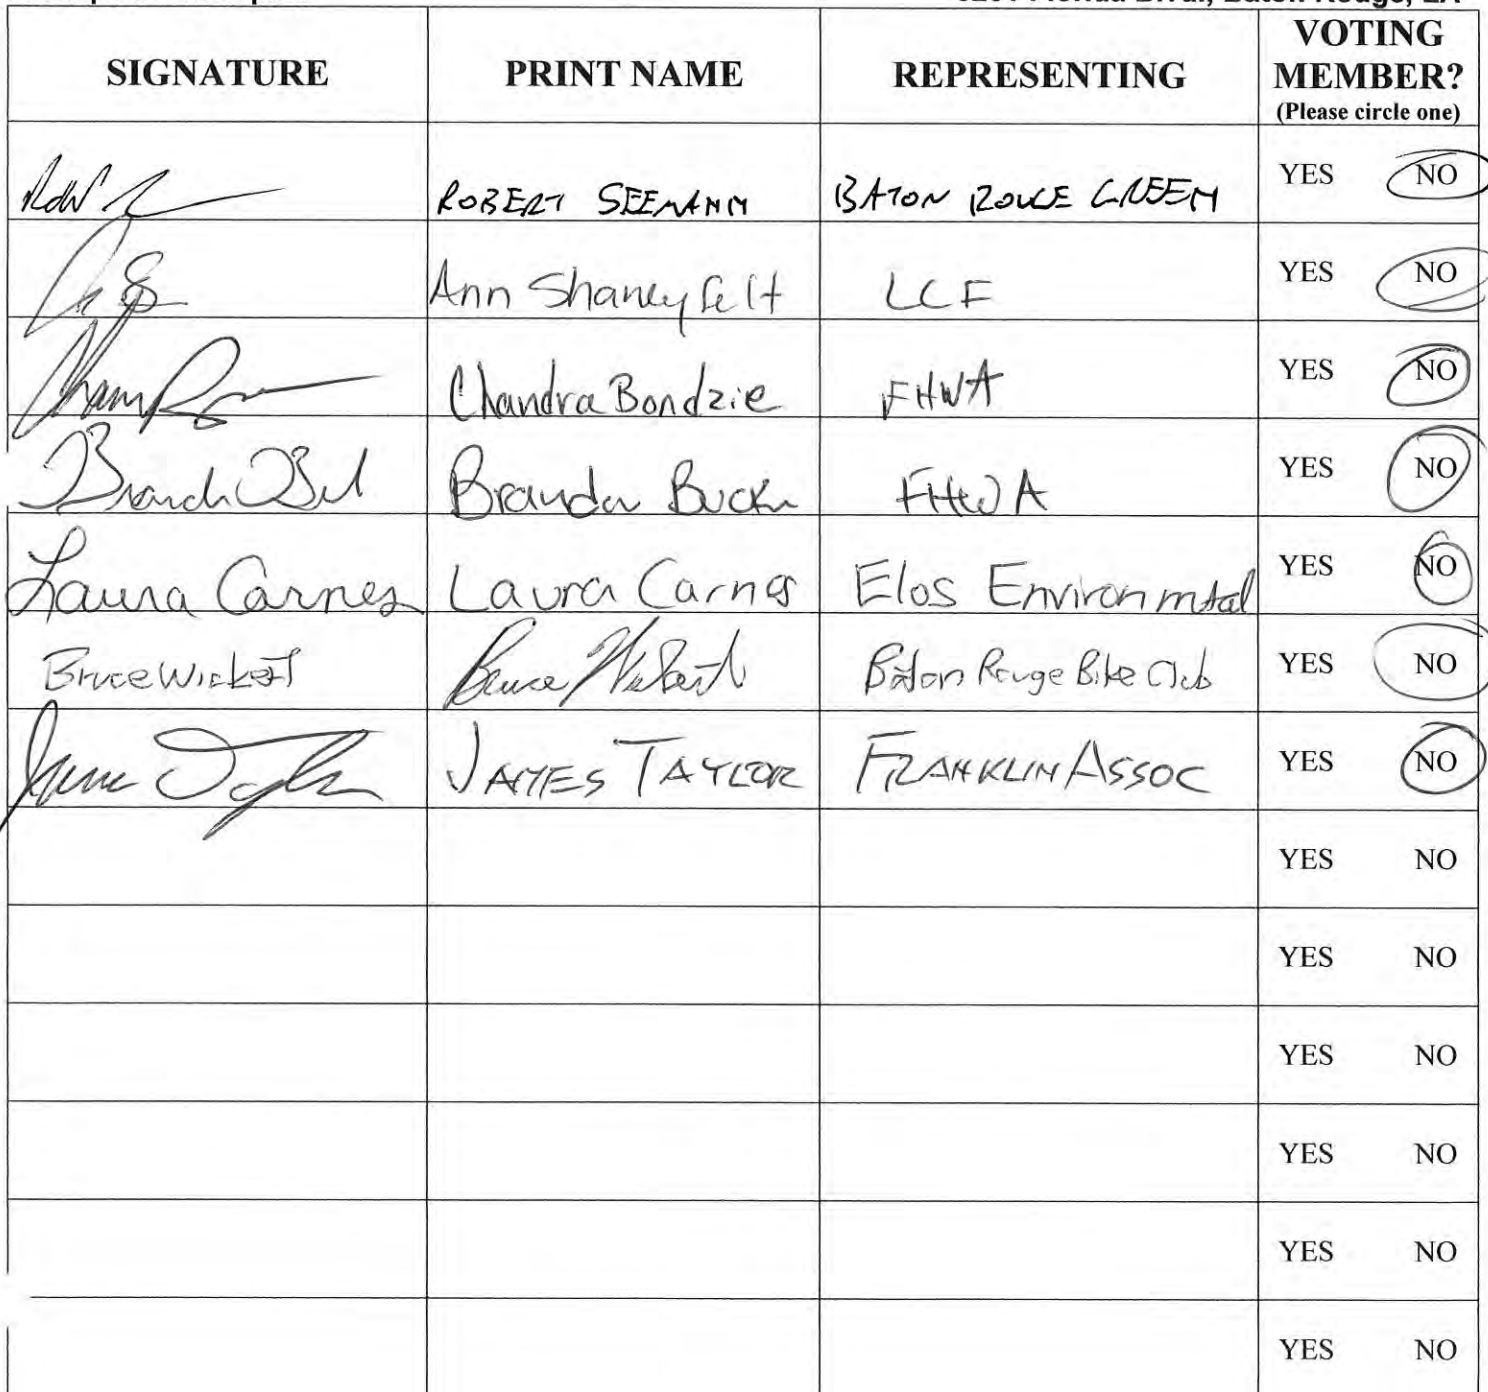 Florida Blvd., Baton Rouge, LA
SIGNATURE PRINT NAME REPRESENTING VOTING MEMBER?
(Please circle one)
ROBERT SEEMANN BATON ROUGE GREEN YES NO
Ann Shaneyfelt LCF YES NO
Chandra Bondzie FHWA YES NO
Brandon Buckner FHWA YES NO
Laura Carnes Laura Carnes Elos Environmental YES NO
Bruce Wickert Bruce Wickert Baton Rouge Bike Club YES NO
James Taylor JAMES TAYLOR FRANKLIN ASSOC YES NO
YES NO
YES NO
YES NO
YES NO
YES NO
YES NO